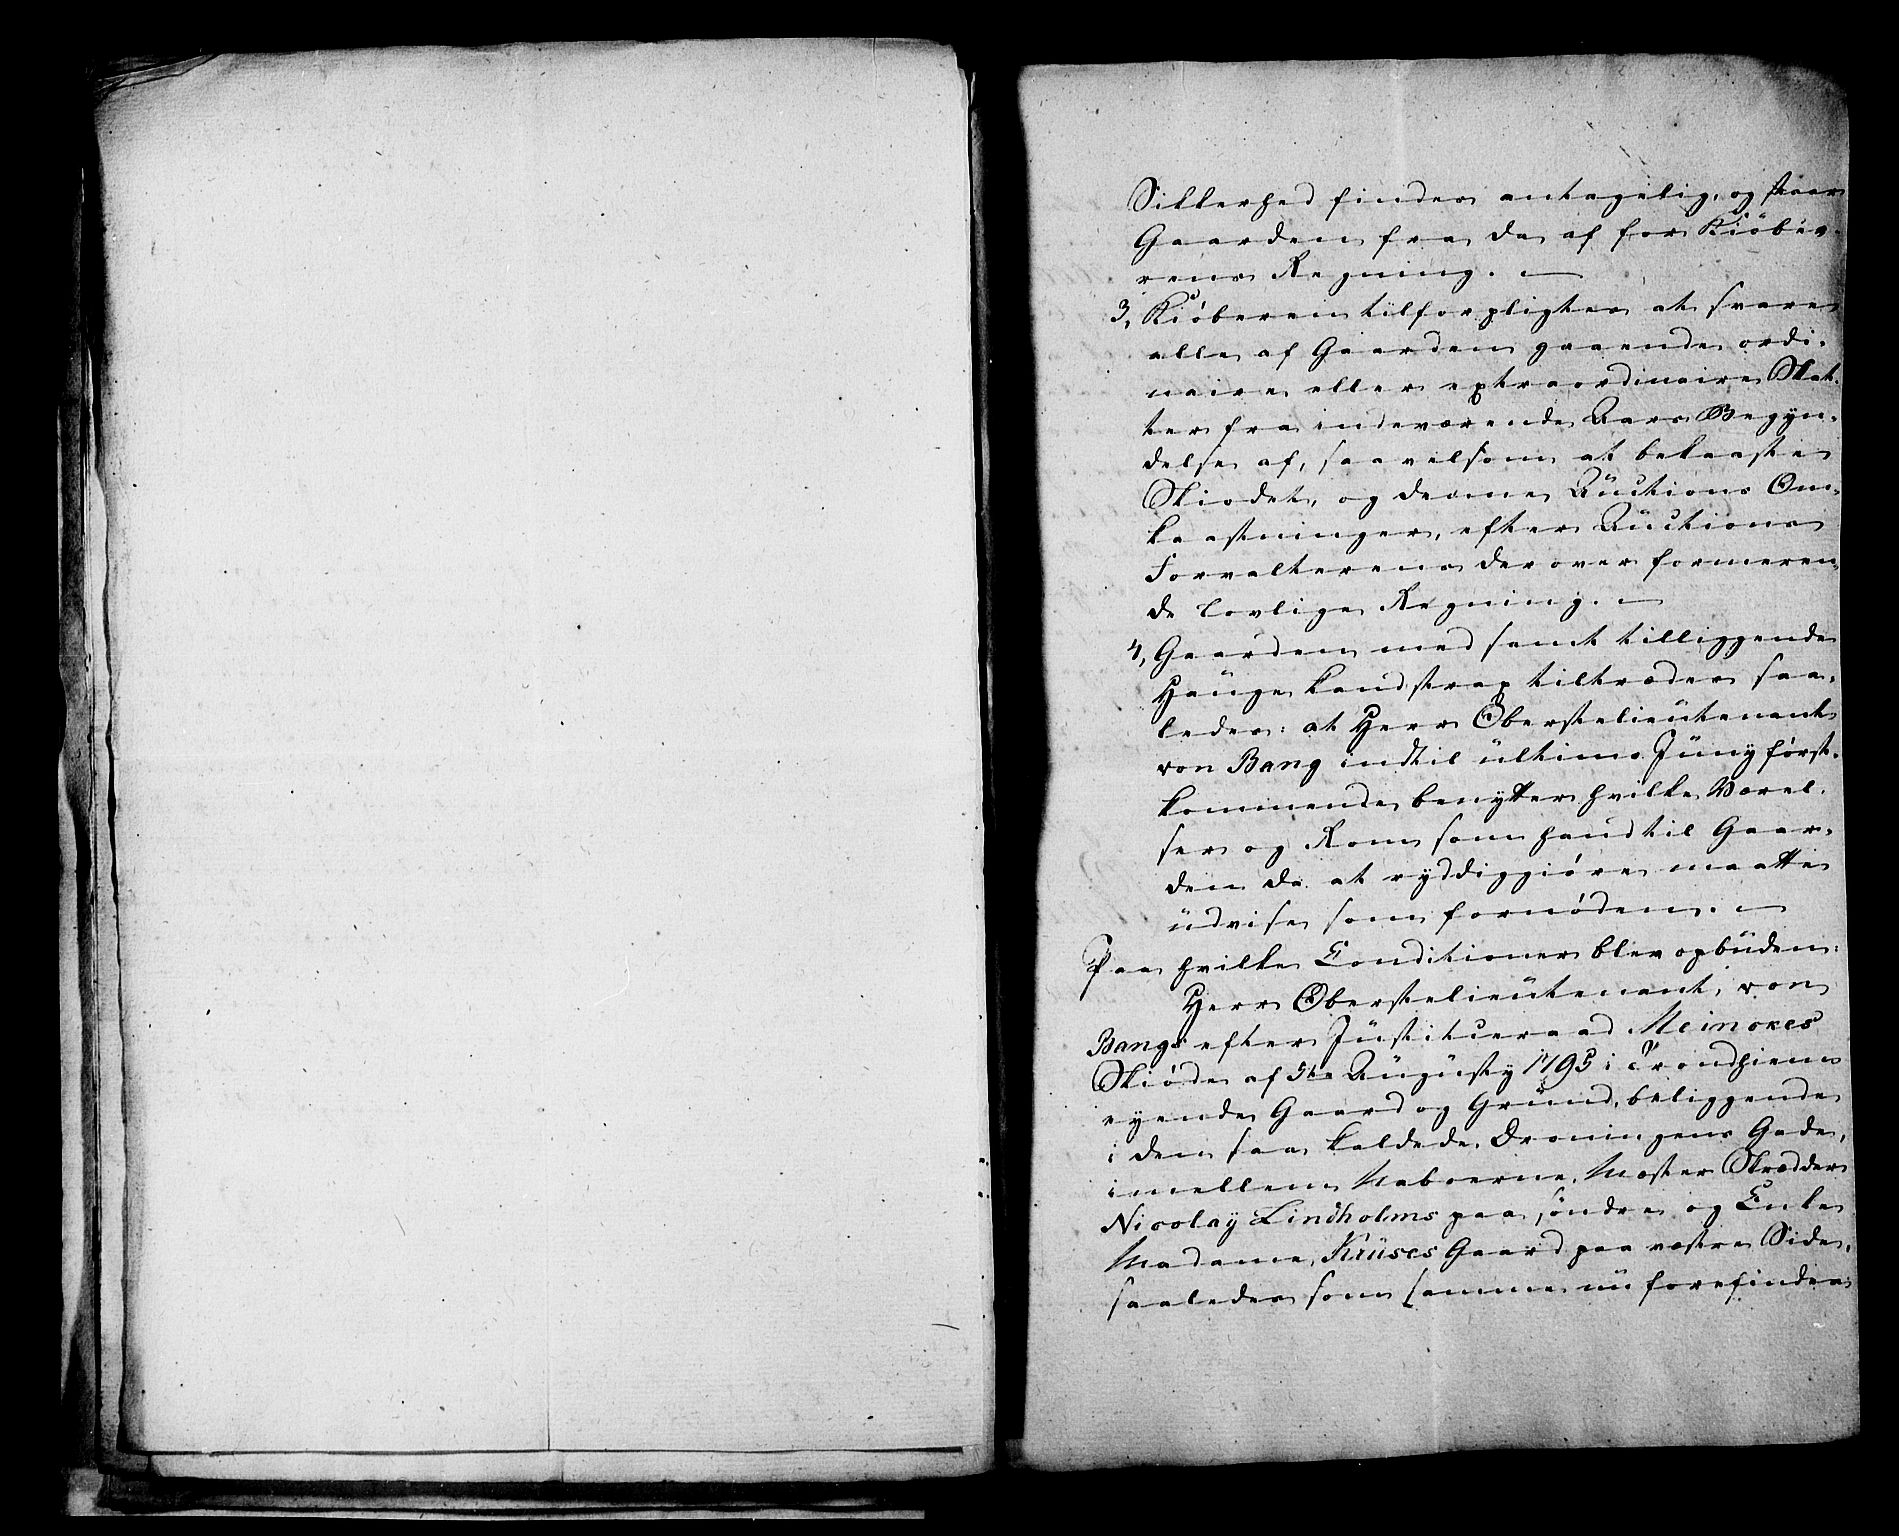 Sikkerhed findes antagelig, og staar
Gaarden fra da af for Kiöbe-
rens Regning. —
3, Kiöberen tilforpligtes at svare
alle af Gaarden gaaende ordi-
naire eller extraordinaire Skat-
ter fra indeværende Aars Begyn-
delse af, saavelsom at bekaaste
Skiödet, og denne Auctions Om-
kaastninger, efter Auctions
Forvalterens derover formeren-
de lovlige Regning. —
4, Gaarden med samt tilliggende
Hauge kandstrax tiltrædes saa-
ledes: at Herr Oberstelieutenant
von Bang indtil ultimo Juny først-
kommende benytter hvilke Værel-
ser og Rom som hand til Gaar-
den da at ryddiggiøre maatte
udvise som fornøden. —
Paa hvilke Conditioner blev opbuden:
Herr Oberstelieutenant, von
Bangs efter Justitceraad Meinckes
Skiøde af 5te Augusty 1795 i Trondhiem
eyende Gaard og Grund, beliggende
i den saa kaldede Dronningens Gade,
imellem Naboerne, Mæster Skrædder
Nicolaÿ Lindholms paa søndre og Enke
Madame, Krüses Gaard paa væstre Side,
saaledes som samme nu forefindes